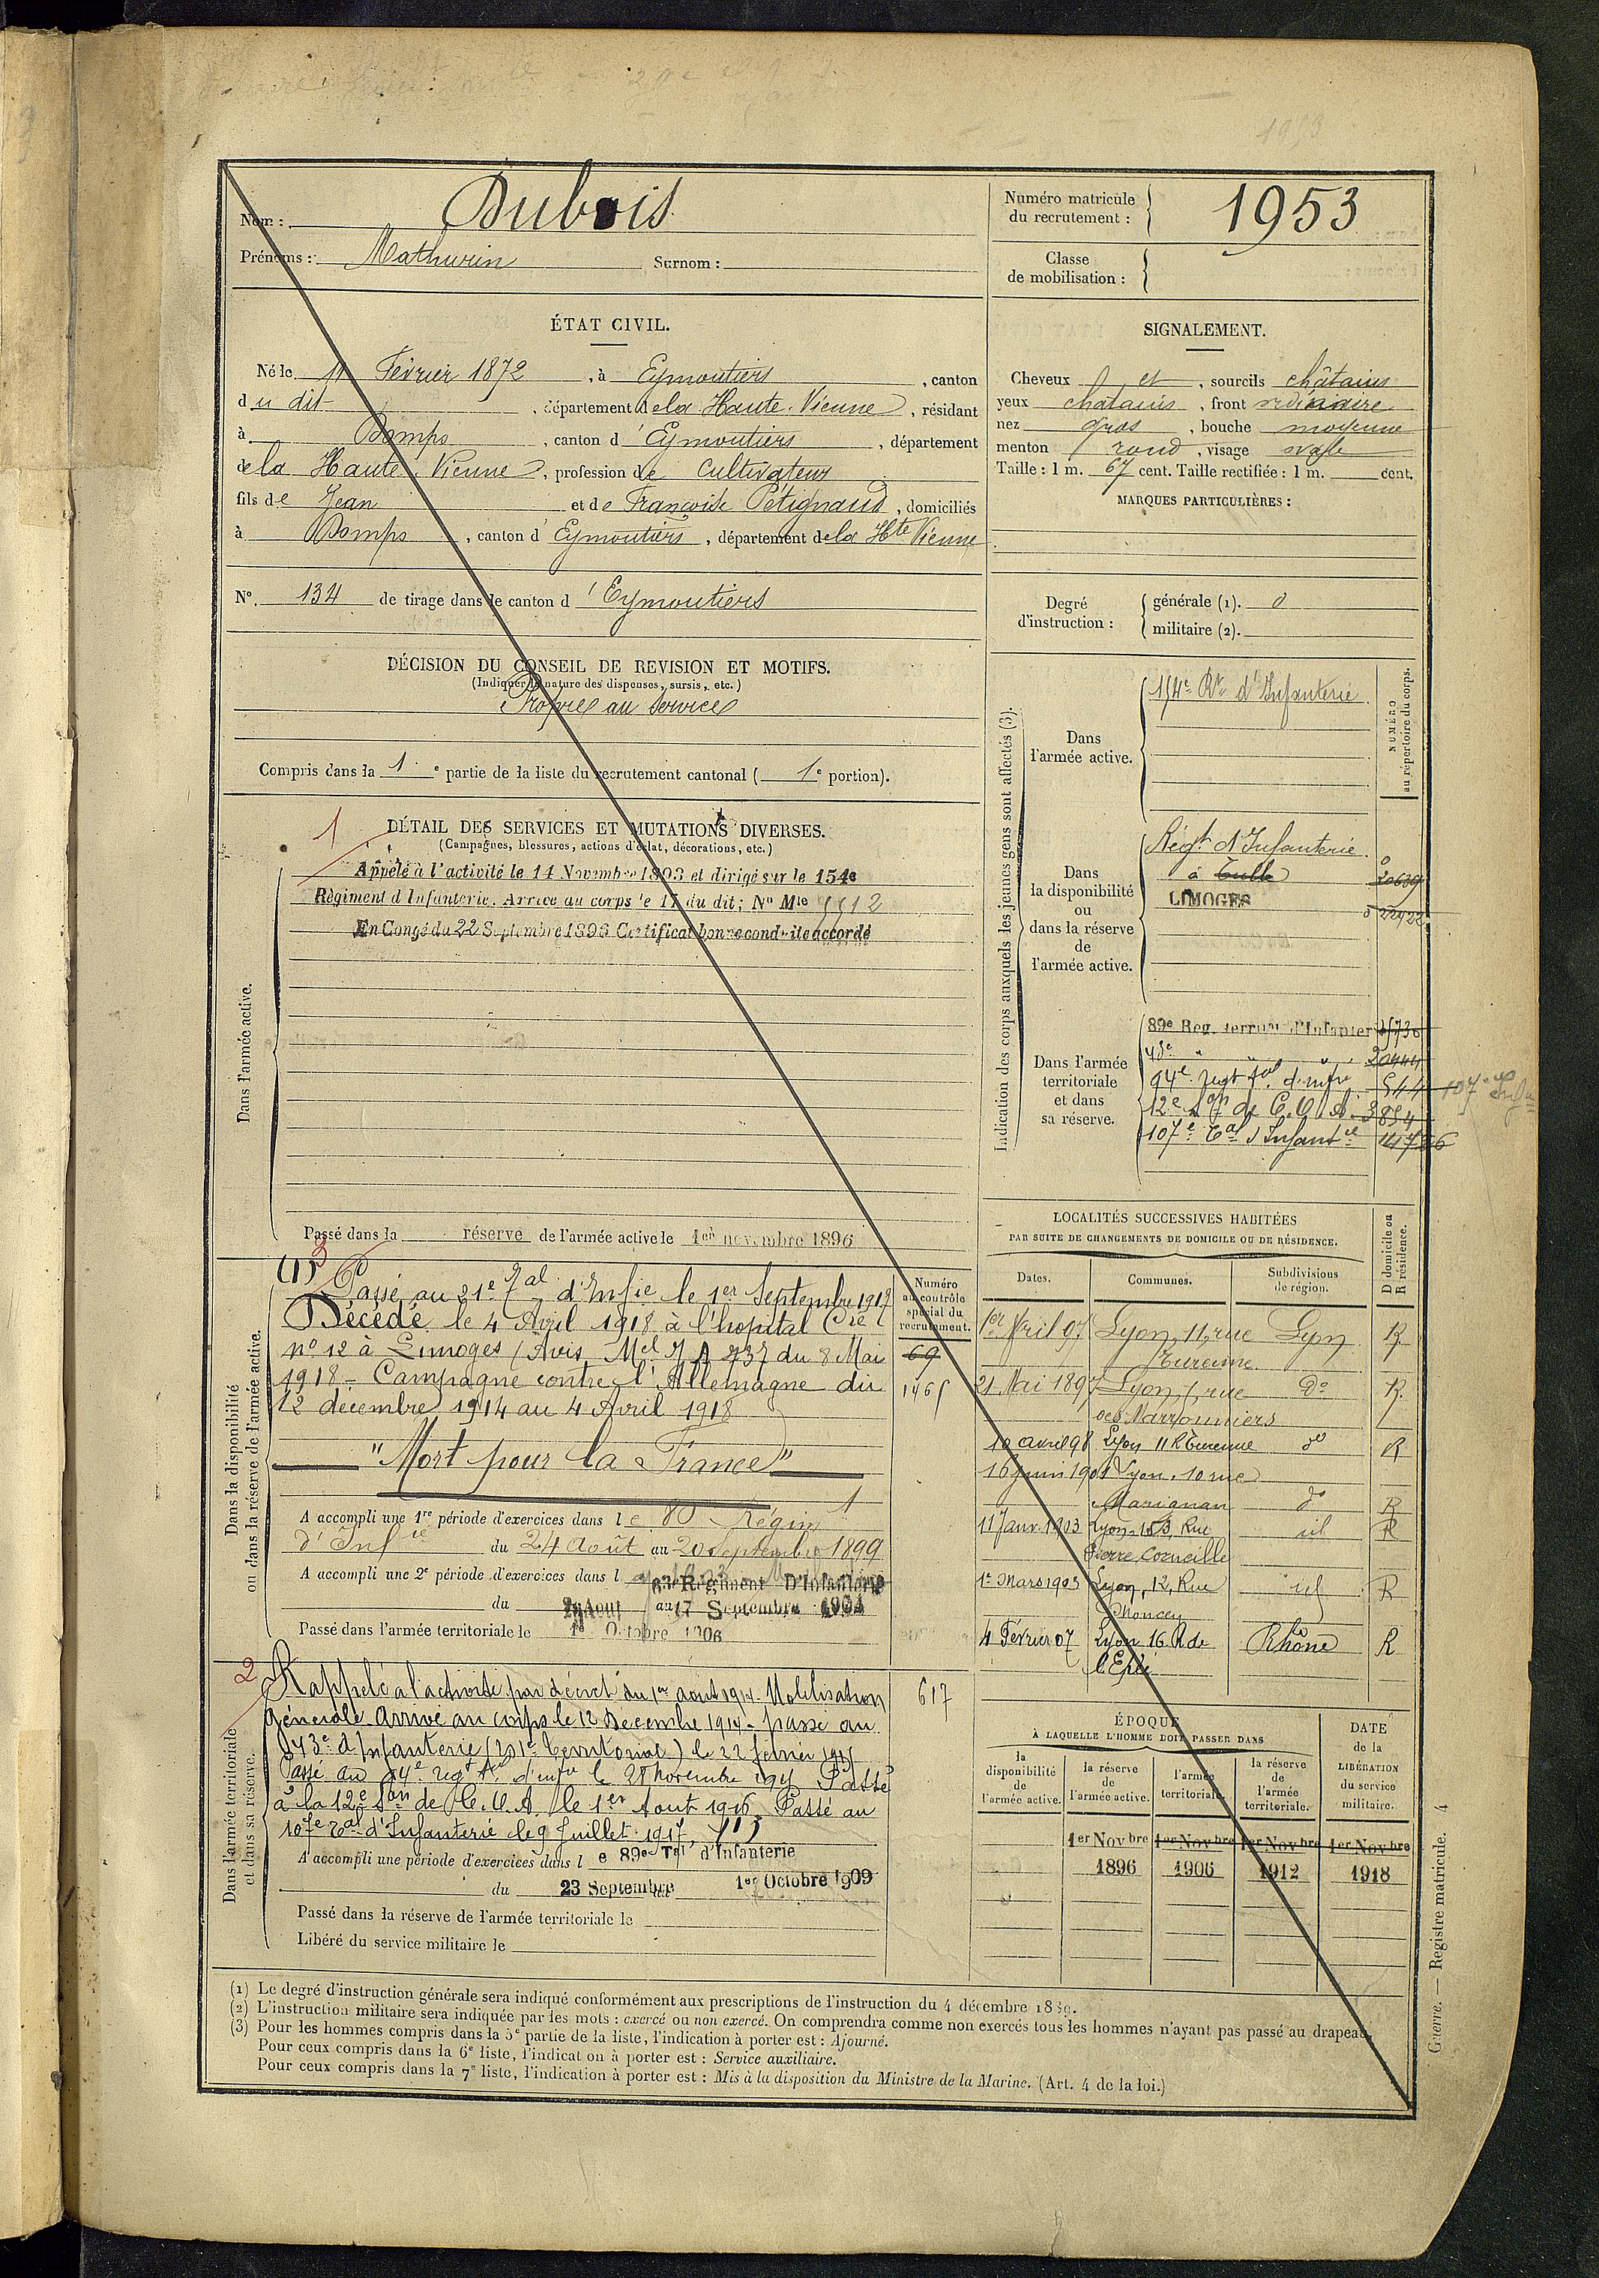 Nom : Dubois
Prénoms : Mathurin Surnom :
Numéro matricule du recrutement : 1953
Classe de mobilisation :
ÉTAT CIVIL.
Né le 11 Février 1872, à Eymoutiers, canton
du dit, département de la Haute-Vienne, résidant
à Domps, canton d'Eymoutiers, département
de la Haute Vienne, profession de cultivateur
fils de Jean et de Françoise Pétignaud, domiciliés
à Domps, canton d'Eymoutiers, département de la Hte Vienne
N°. 134 de tirage dans le canton d'Eymoutiers
SIGNALEMENT.
Cheveux et, sourcils châtains
yeux chatains, front ordinaire
nez gros, bouche moyenne
menton rond, visage ovale
Taille : 1 m. 67 cent. Taille rectifiée : 1 m. cent.
MARQUES PARTICULIÈRES :
Degré d'instruction : générale (1). 0
militaire (2).
DÉCISION DU CONSEIL DE REVISION ET MOTIFS.
(Indiquer la nature des dispenses, sursis, etc.)
Propre au service
Compris dans la 1e partie de la liste du recrutement cantonal (1e portion).
1
DÉTAIL DES SERVICES ET MUTATIONS DIVERSES.
(Campagnes, blessures, actions d'éclat, décorations, etc.)
Dans l'armée active.
Appelé à l'activité le 14 Novembre 1893 et dirigé sur le 154e
Régiment d'Infanterie. Arrivé au corps le 17 du dit; No Mle 5512
En Congé du 22 Septembre 1896 Certificat bonne conduite accordé
Passé dans la réserve de l'armée active le 1er novembre 1896
Indication des corps auxquels les jeunes gens sont affectés (3).
NUMÉRO au répertoire du corps.
Dans l'armée active.
154e Rt d'Infanterie
Dans la disponibilité ou dans la réserve de l'armée active.
Régt d'Infanterie
à Tulle
LIMOGES
20639
22922
Dans l'armée territoriale et dans sa réserve.
89e Reg. territ. d'Infanter
94e regt tal d'infie 544
12e Son de C.O.A. 3854
107e Tal d'Infantie
LOCALITÉS SUCCESSIVES HABITÉES
PAR SUITE DE CHANGEMENTS DE DOMICILE OU DE RÉSIDENCE.
Dates. Communes. Subdivisions de région. D domicile ou R résidence.
1er Avril 97 Lyon, 11, rue Lyon R
Turenne
21 Mai 1897 Lyon, rue do R.
des Marronniers
10 avril 98 Lyon 11 R Turenne do R
16 juin 1901 Lyon, 10 rue
Marignan do R
11 Janv. 1903 Lyon, 153, Rue id R
Pierre Corneille
1er Mars 1903 Lyon, 12, Rue id R
Moncey
4 Février 07 Lyon 16 R de Rhône R
l'Epée
Dans la disponibilité ou dans la réserve de l'armée active.
(1) 3
Passé au 21e Tal d'Infie le 1er Septembre 1917
Décédé le 4 Avril 1918 à l'hopital Cre
no 12 à Limoges (Avis Mel 737 du 8 Mai
1918 - Campagne contre l'Allemagne du
12 décembre 1914 au 4 Avril 1918
"Mort pour la France"
Numéro au contrôle spécial du recrutement.
69
1465
A accompli une 1re période d'exercices dans le 80 Régim 1
d'Infie du 24 Août au 20 Septembre 1899
A accompli une 2e période d'exercices dans l 63e Régiment D'Infanterie
du Août au 17 Septembre 1904
Passé dans l'armée territoriale le 1er Octobre 1906
Dans l'armée territoriale et dans sa réserve.
2
Rappelé à l'activité par décret du 1er août 1914. Mobilisation
Générale. Arrivé au corps le 12 Décembre 1914 - passé au
Infanterie (201e Territorial) le 22 février 1915
Passé au 94e regt tal d'infie le novembre 1915 Passé
à la 12e Son de C.O.A. le 1er Aout 1916. Passé au
107e Tal d'Infanterie le 9 Juillet 1917
617
A accompli une période d'exercices dans le 89e Tal d'Infanterie
du 23 Septembre 1er Octobre 1909
Passé dans la réserve de l'armée territoriale le
Libéré du service militaire le
ÉPOQUE
À LAQUELLE L'HOMME DOIT PASSER DANS
la disponibilité de l'armée active.
la réserve de l'armée active.
l'armée territoriale.
la réserve de l'armée territoriale.
DATE de la LIBÉRATION du service militaire.
1er Novbre 1er Novbre 1er Novbre 1er Novbre
1896 1906 1912 1918
(1) Le degré d'instruction générale sera indiqué conformément aux prescriptions de l'instruction du 4 décembre 1889.
(2) L'instruction militaire sera indiquée par les mots : exercé ou non exercé. On comprendra comme non exercés tous les hommes n'ayant pas passé au drapeau.
(3) Pour les hommes compris dans la 5e partie de la liste, l'indication à porter est : Ajourné.
Pour ceux compris dans la 6e liste, l'indication à porter est : Service auxiliaire.
Pour ceux compris dans la 7e liste, l'indication à porter est : Mis à la disposition du Ministre de la Marine. (Art. 4 de la loi.)
Guerre. — Registre matricule. 4